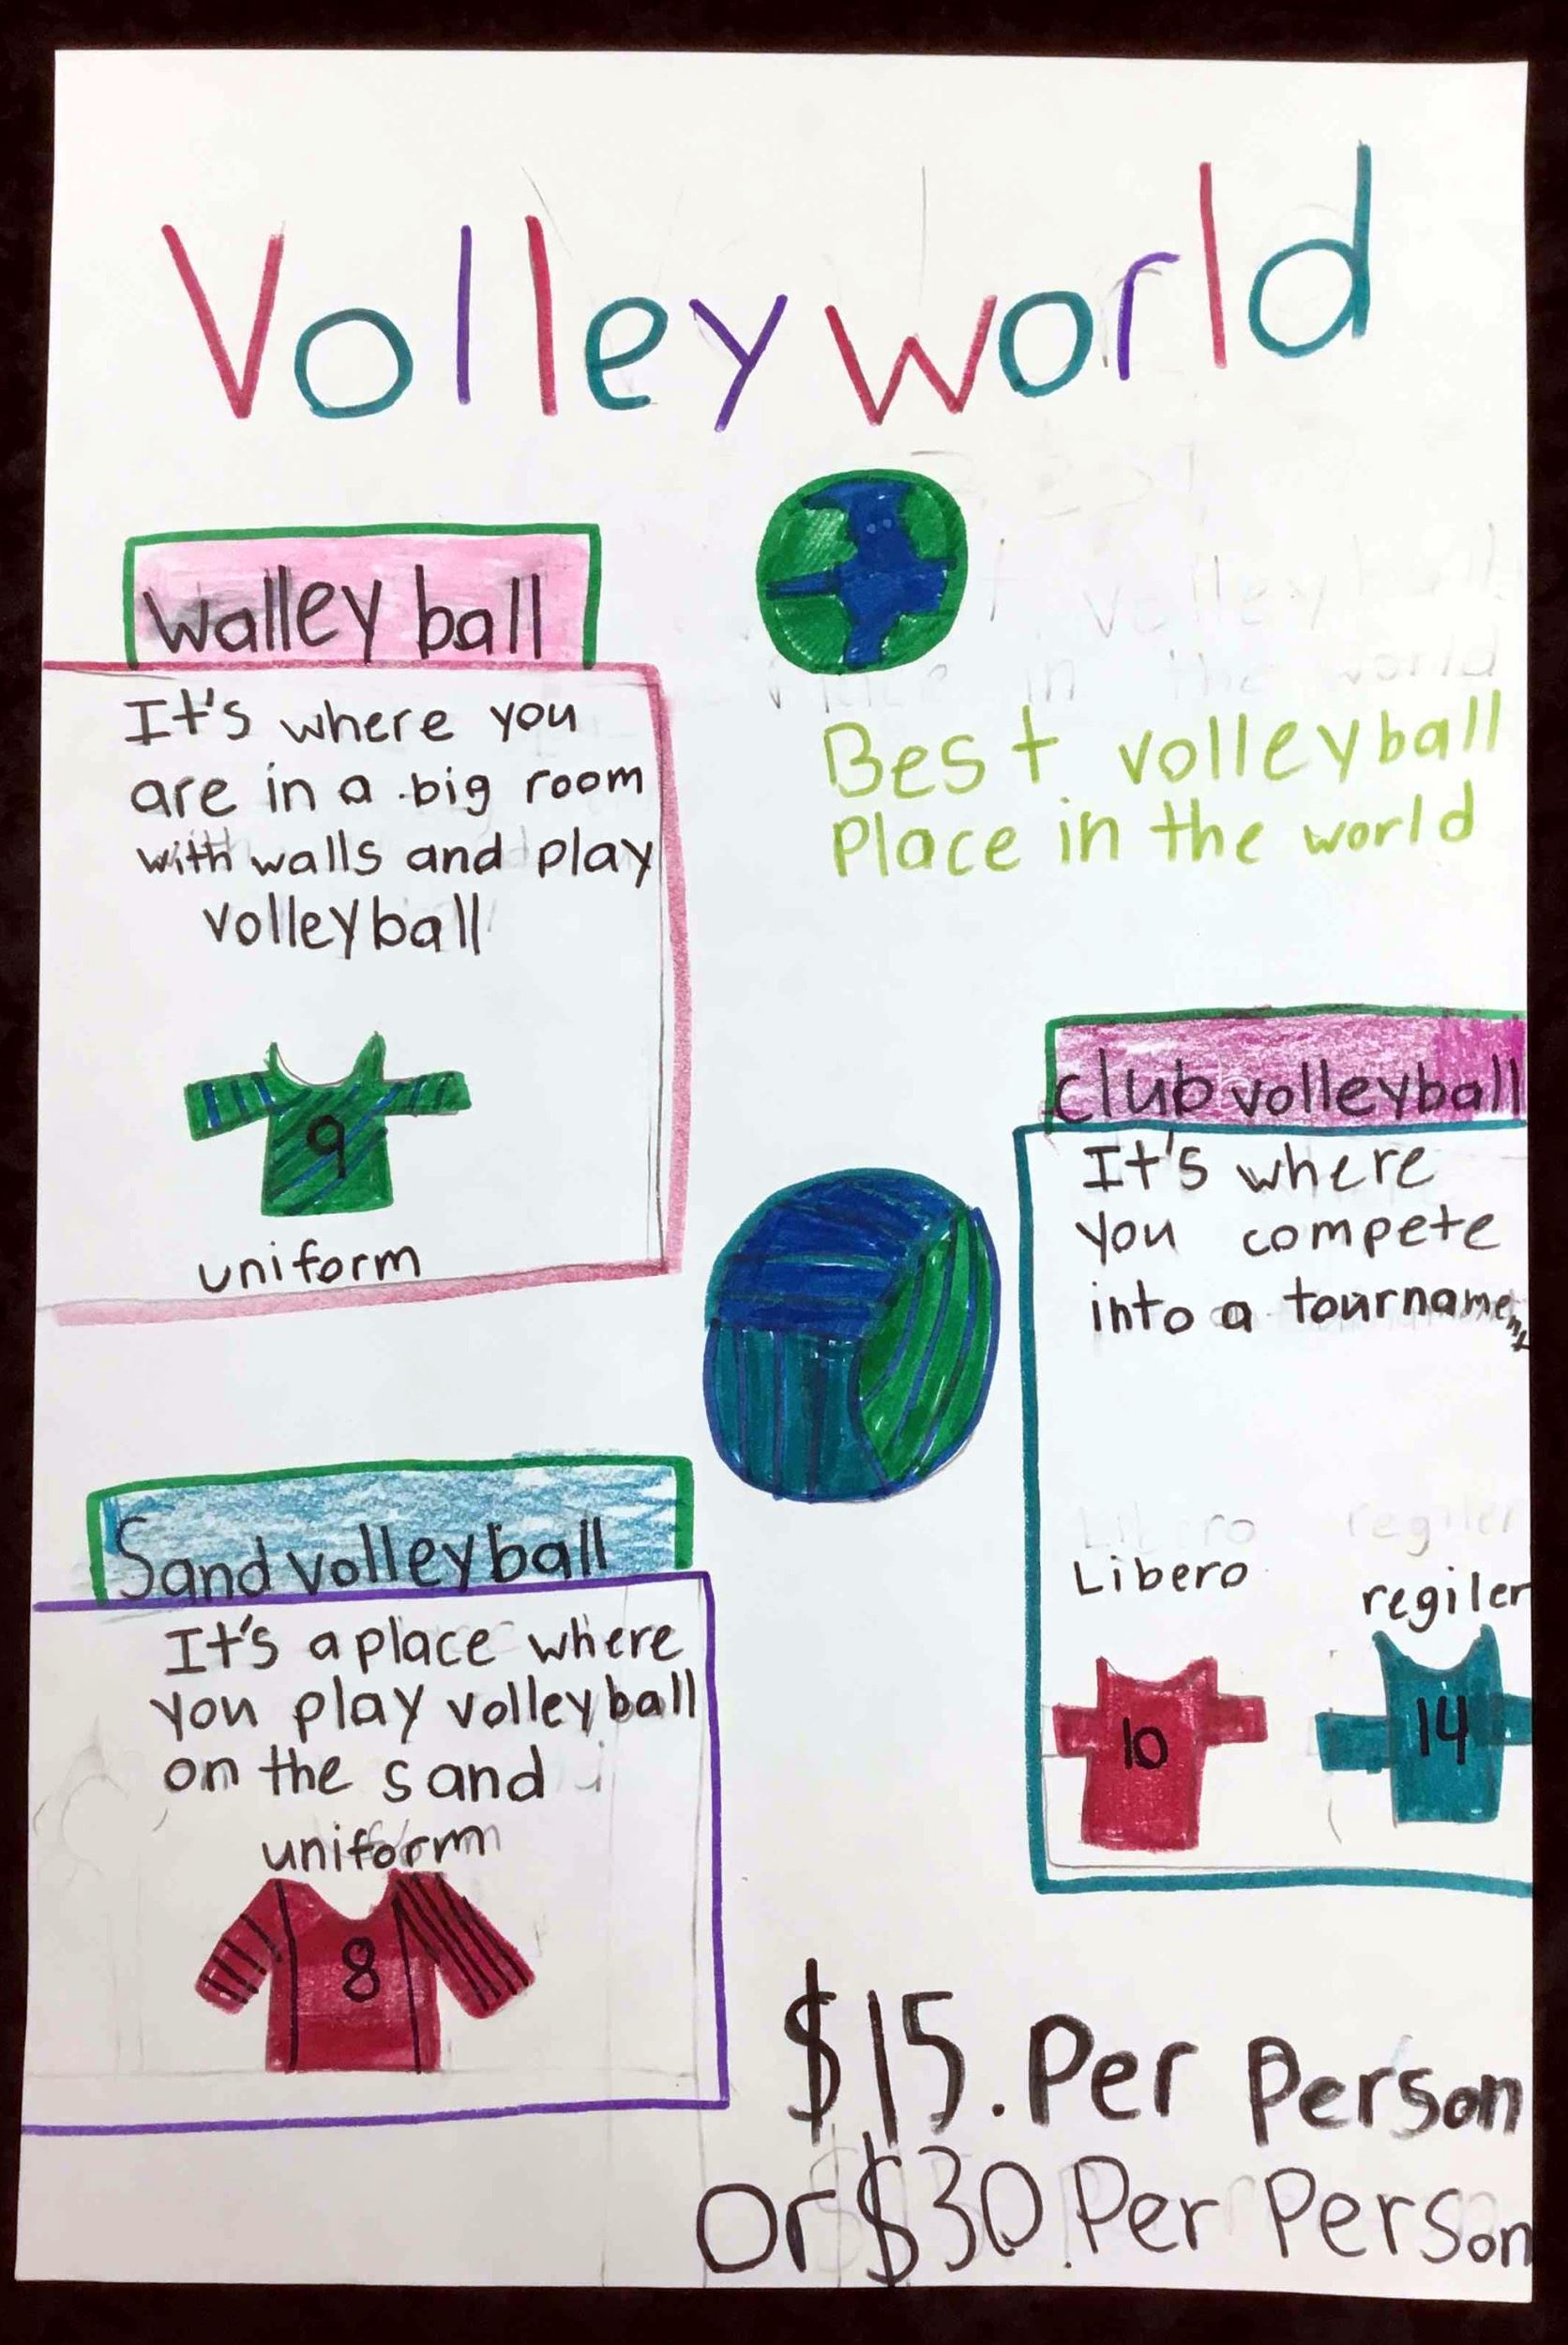 Volleyworld
Walleyball
It's where you
are in a big room
with walls and play
volleyball
9
uniform
Best volleyball
Place in the world
club volleyball
It's where
you compete
into a tournament
Libero
regiler
10
14
Sand volleyball
It's a place where
you play volleyball
on the sand
uniform
8
$15. Per Person
Or $30. Per Person